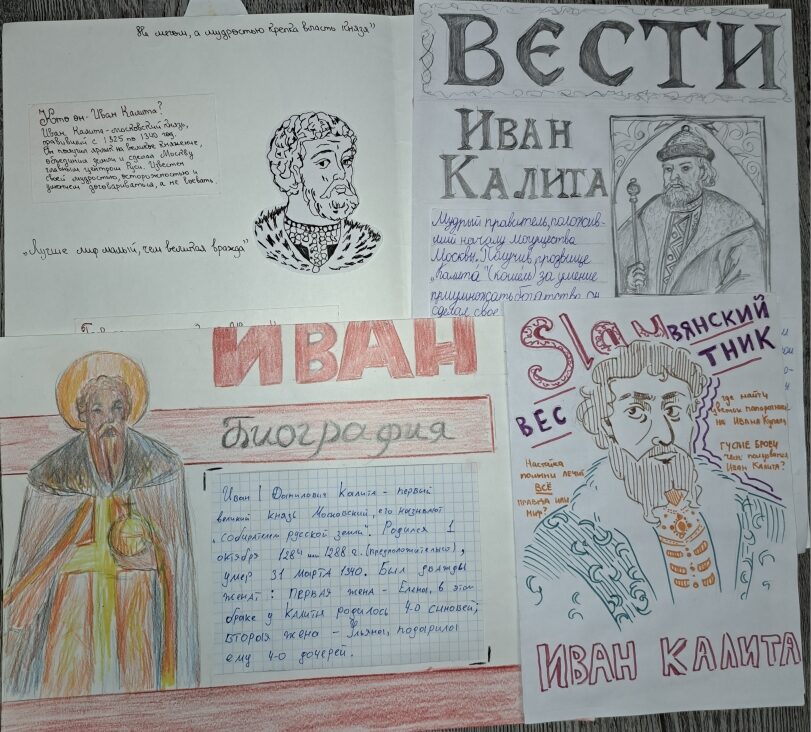 Не мечом, а мудростью крепка власть князя"
Кто он - Иван Калита?
Иван Калита - московский князь,
правивший с 1325 по 1340 год.
Он получил ярлык на великое княжение,
объединил земли и сделал Москву
главным центром Руси. Известен
своей мудростью, осторожностью и
умением договариваться, а не воевать
„Лучше мир малый, чем великая вражда"
ВЕСТИ
ИВАН
КАЛИТА
Мудрый правитель, положив-
ший начало могущества
Москвы. Получив прозвище
"Калита" (кошель) за умение
приумножать богатства, он
сделал свое
ИВАН
Биография
Иван I Данилович Калита - первый
великий князь Московский, его называют
„собирателем русской земли". Родился 1
октября 1284 или 1288 г. (предположительно),
умер 31 марта 1340. Был дважды
женат: первая жена - Елена, в этом
браке у Калиты родилось 4-о сыновей;
вторая жена - Ульяна, подарила
ему 4-о дочерей.
Slavвянский
ВЕСТНИК
где найти
цветок папоротника
на Ивана Купала
ГУСТЫЕ БРОВИ
чем пользовался
Иван Калита?
Настойка
полыни лечит
ВСЁ
правда или
миф?
ИВАН КАЛИТА